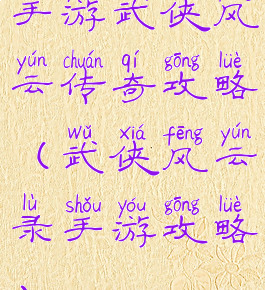 手游武侠风
yún chuán qí gōng lüè
云传奇攻略
wǔ xiá fēng yún
(武侠风云
lù shǒu yóu gōng lüè
录手游攻略
)